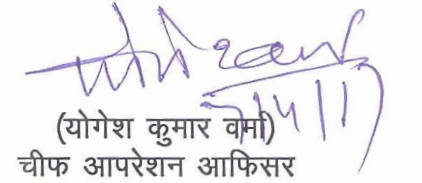 7/4/17
(योगेश कुमार वर्मा)
चीफ आपरेशन आफिसर